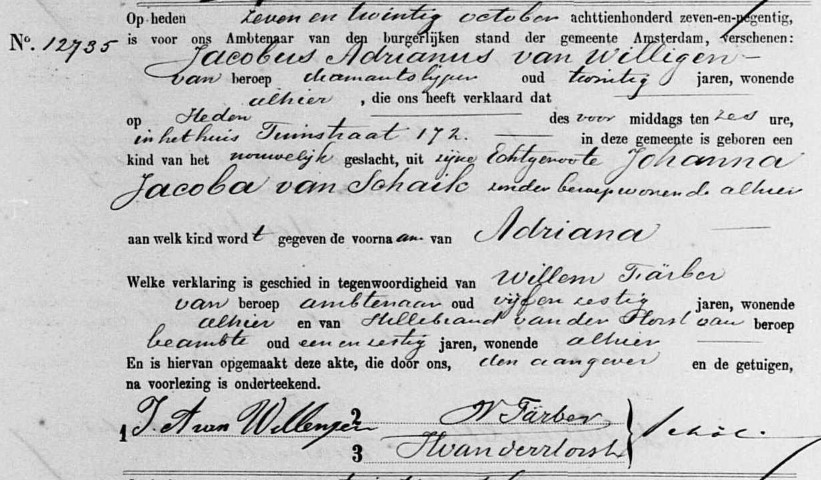 Op heden zeven en twintig october achttienhonderd zeven-en-negentig,
No. 12735 is voor ons Ambtenaar van den burgerlijken stand der gemeente Amsterdam, verschenen:
Jacobus Adrianus van Willigen
van beroep diamantslijper oud twintig jaren, wonende
alhier, die ons heeft verklaard dat
op Heden des voor middags ten zes ure,
in het huis Tuinstraat 172. in deze gemeente is geboren een
kind van het vrouwelijk geslacht, uit zijne Echtgenoote Johanna
Jacoba van Schaik zonder beroep wonende alhier
aan welk kind wordt gegeven de voornaam van Adriana
Welke verklaring is geschied in tegenwoordigheid van Willem Färber
van beroep ambtenaar oud vijf en zestig jaren, wonende
alhier en van Hillebrand van der Horst van beroep
beambte oud een en zestig jaren, wonende alhier
En is hiervan opgemaakt deze akte, die door ons, den aangever en de getuigen,
na voorlezing is onderteekend.
1 J. A. van Willengen 2 W Färber
3 H van der Horst